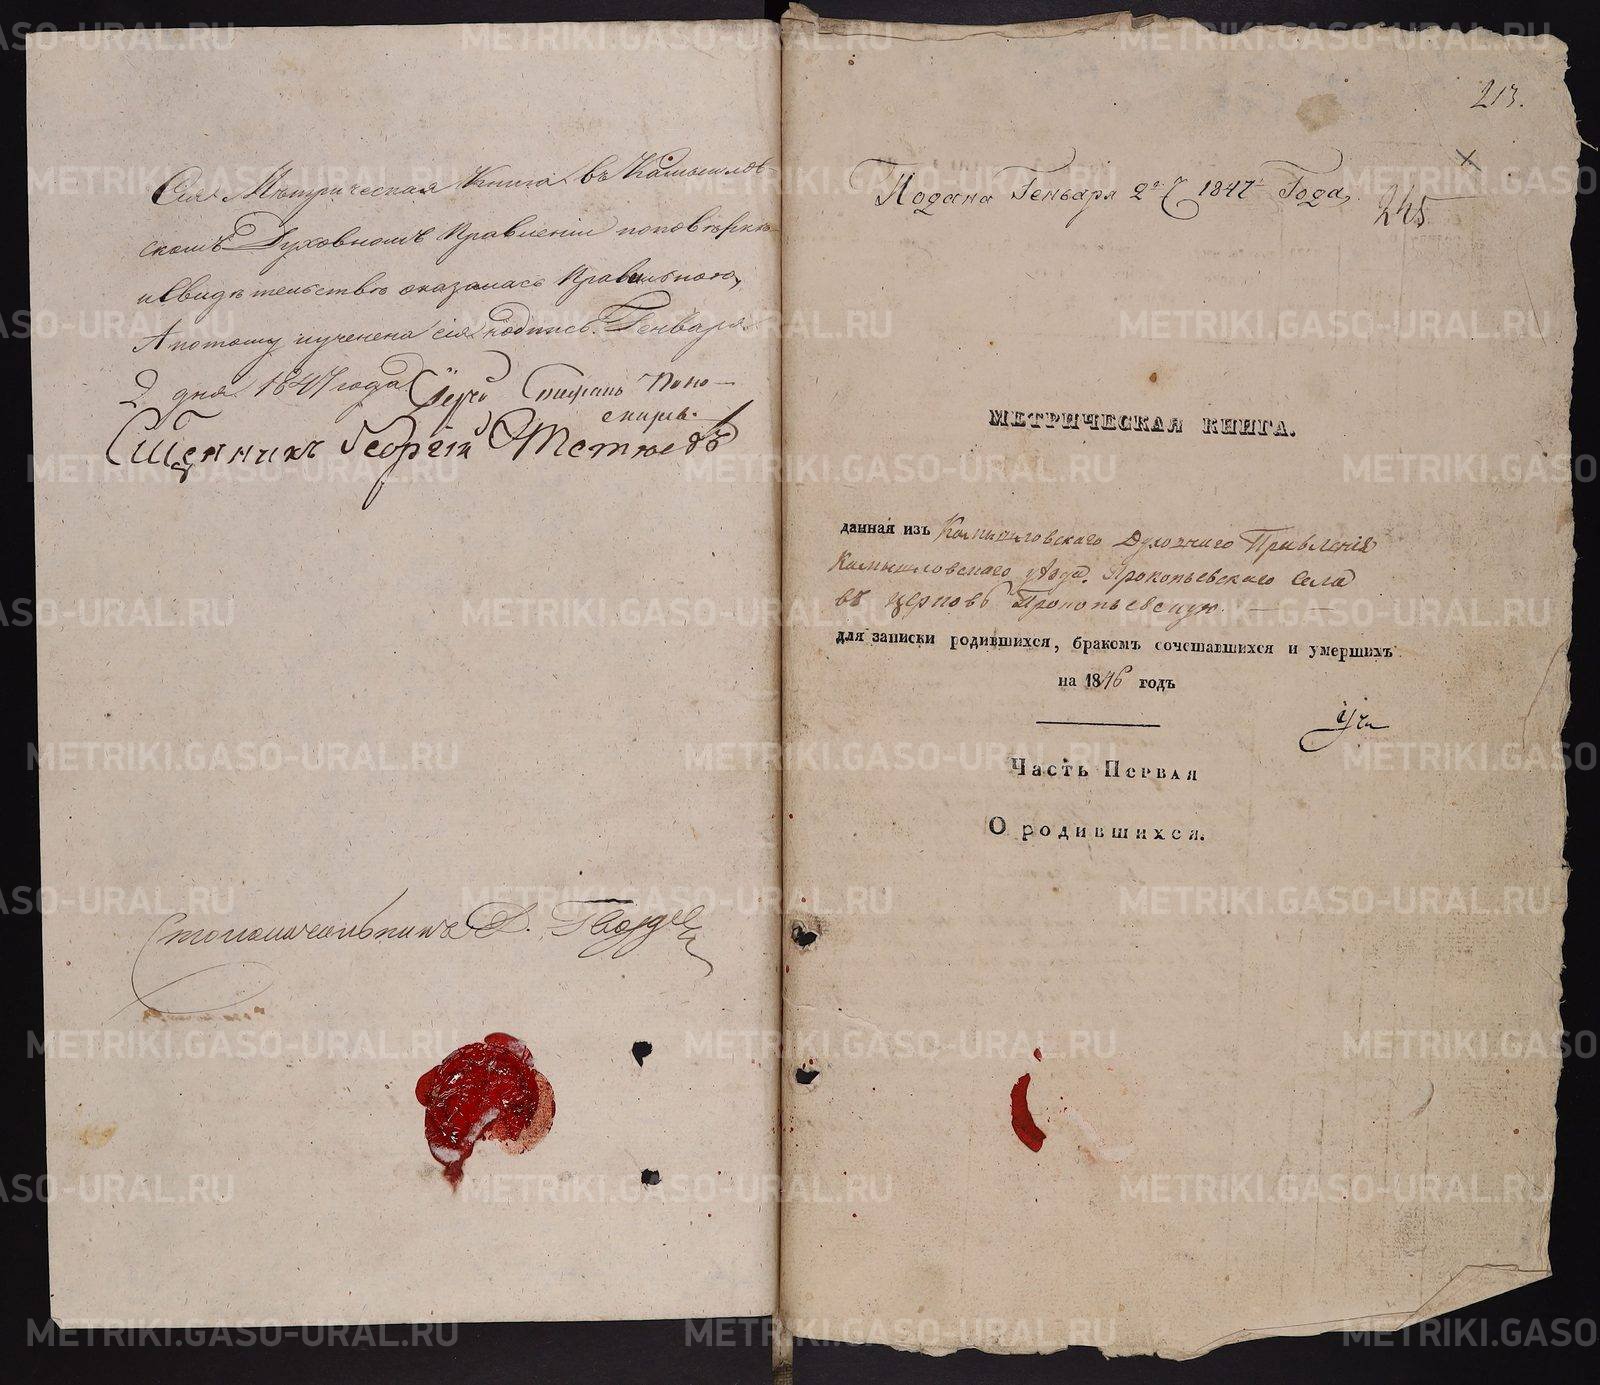 Сія Метрическая Книга въ Камышлов-
скомъ Духовномъ Правленіи поповѣркѣ
и Свидѣтельству оказалась правильною,
А потому и учинена сія подпись. Генваря
2 дня 1847 года. Іерей Стефанъ Поно-
Священникъ Георгій
Столоначальникъ
213.
Подана Генваря 2го 1847 Года,
245
МЕТРИЧЕСКАЯ КНИГА.
данная изъ Камышловскаго Духовнаго Правленія
Камышловскаго уѣзда. Прокопьевскаго Села
въ церковь Прокопьевскую.
для записки родившихся, бракомъ сочетавшихся и умершихъ
на 1846 годъ
Часть Первая
О родившихся.
METRIKI.GASO-URAL.RU